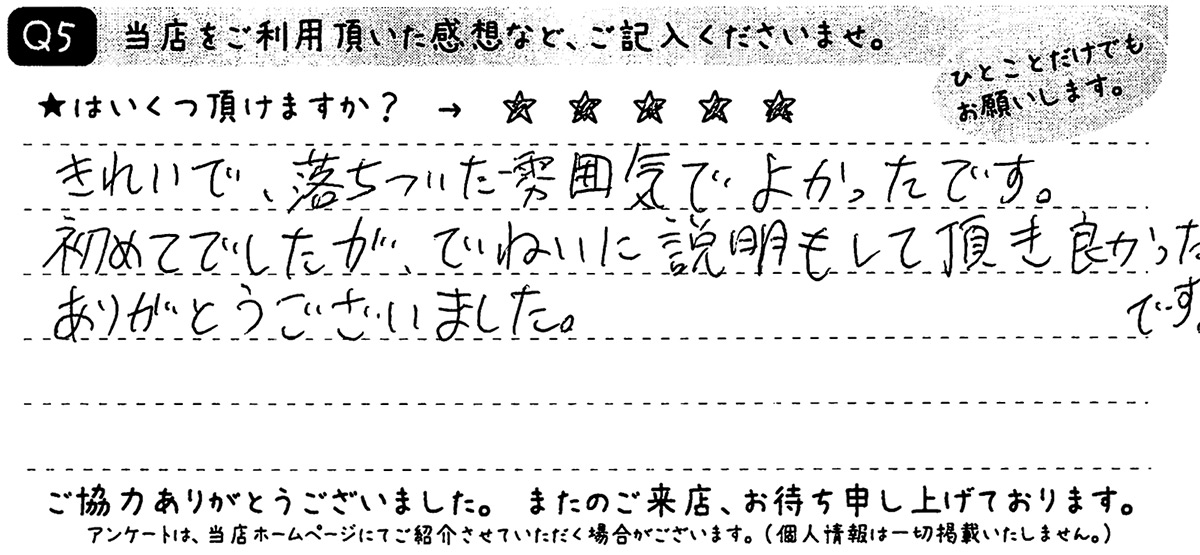 Q5 当店をご利用頂いた感想など、ご記入くださいませ。
ひとことだけでも
お願いします。
★はいくつ頂けますか？ → ☆ ☆ ☆ ☆ ☆
きれいで、落ちついた雰囲気でよかったです。
初めてでしたが、ていねいに説明もして頂き良かった
です。
ありがとうございました。
ご協力ありがとうございました。 またのご来店、お待ち申し上げております。
アンケートは、当店ホームページにてご紹介させていただく場合がございます。（個人情報は一切掲載いたしません。）